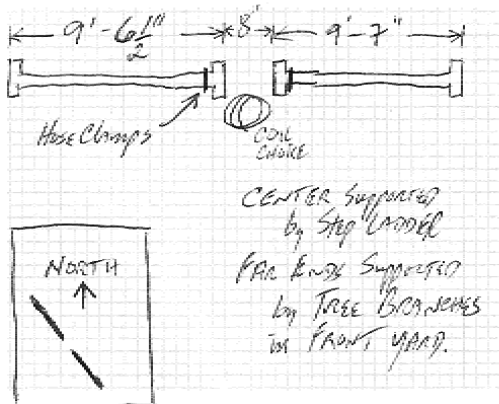 9'-6 1/2" 8" 9'-7"
Hose Clamps
COAX
CHOKE
CENTER Supported
by Step LADDER
FAR Ends Supported
by TREE BRANCHES
in FRONT YARD.
NORTH